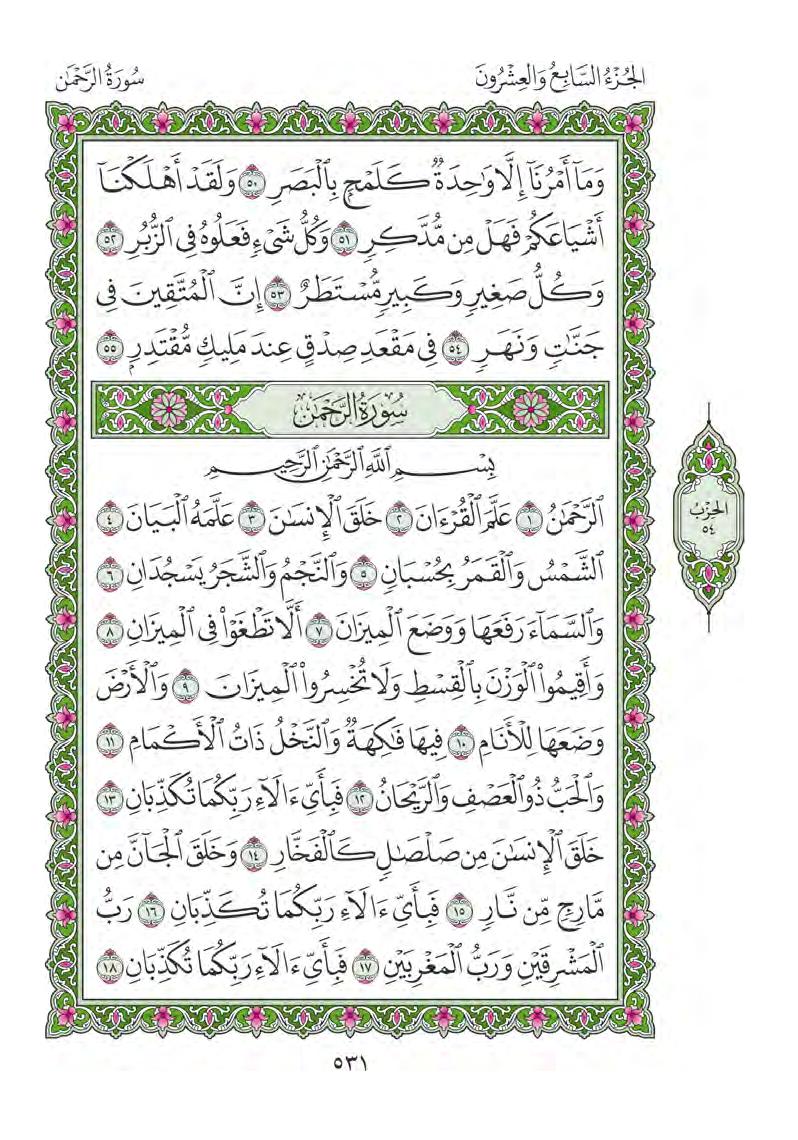 الجُزْءُ السَّابِعُ وَالعِشْرُونَ
سُورَةُ الرَّحْمَٰن
وَمَآ أَمْرُنَآ إِلَّا وَٰحِدَةٌ كَلَمْحٍۭ بِٱلْبَصَرِ ٥٠ وَلَقَدْ أَهْلَكْنَآ
أَشْيَاعَكُمْ فَهَلْ مِن مُّدَّكِرٍ ٥١ وَكُلُّ شَىْءٍ فَعَلُوهُ فِى ٱلزُّبُرِ ٥٢
وَكُلُّ صَغِيرٍ وَكَبِيرٍ مُّسْتَطَرٌ ٥٣ إِنَّ ٱلْمُتَّقِينَ فِى
جَنَّٰتٍ وَنَهَرٍ ٥٤ فِى مَقْعَدِ صِدْقٍ عِندَ مَلِيكٍ مُّقْتَدِرٍۭ ٥٥
سُورَةُ الرَّحْمَٰن
بِسْمِ ٱللَّهِ ٱلرَّحْمَٰنِ ٱلرَّحِيمِ
ٱلرَّحْمَٰنُ ١ عَلَّمَ ٱلْقُرْءَانَ ٢ خَلَقَ ٱلْإِنسَٰنَ ٣ عَلَّمَهُ ٱلْبَيَانَ ٤
ٱلشَّمْسُ وَٱلْقَمَرُ بِحُسْبَانٍ ٥ وَٱلنَّجْمُ وَٱلشَّجَرُ يَسْجُدَانِ ٦
وَٱلسَّمَآءَ رَفَعَهَا وَوَضَعَ ٱلْمِيزَانَ ٧ أَلَّا تَطْغَوْا۟ فِى ٱلْمِيزَانِ ٨
وَأَقِيمُوا۟ ٱلْوَزْنَ بِٱلْقِسْطِ وَلَا تُخْسِرُوا۟ ٱلْمِيزَانَ ٩ وَٱلْأَرْضَ
وَضَعَهَا لِلْأَنَامِ ١٠ فِيهَا فَٰكِهَةٌ وَٱلنَّخْلُ ذَاتُ ٱلْأَكْمَامِ ١١
وَٱلْحَبُّ ذُو ٱلْعَصْفِ وَٱلرَّيْحَانُ ١٢ فَبِأَىِّ ءَالَآءِ رَبِّكُمَا تُكَذِّبَانِ ١٣
خَلَقَ ٱلْإِنسَٰنَ مِن صَلْصَٰلٍ كَٱلْفَخَّارِ ١٤ وَخَلَقَ ٱلْجَآنَّ مِن
مَّارِجٍ مِّن نَّارٍ ١٥ فَبِأَىِّ ءَالَآءِ رَبِّكُمَا تُكَذِّبَانِ ١٦ رَبُّ
ٱلْمَشْرِقَيْنِ وَرَبُّ ٱلْمَغْرِبَيْنِ ١٧ فَبِأَىِّ ءَالَآءِ رَبِّكُمَا تُكَذِّبَانِ ١٨
الحِزْبُ
٥٤
٥٣١